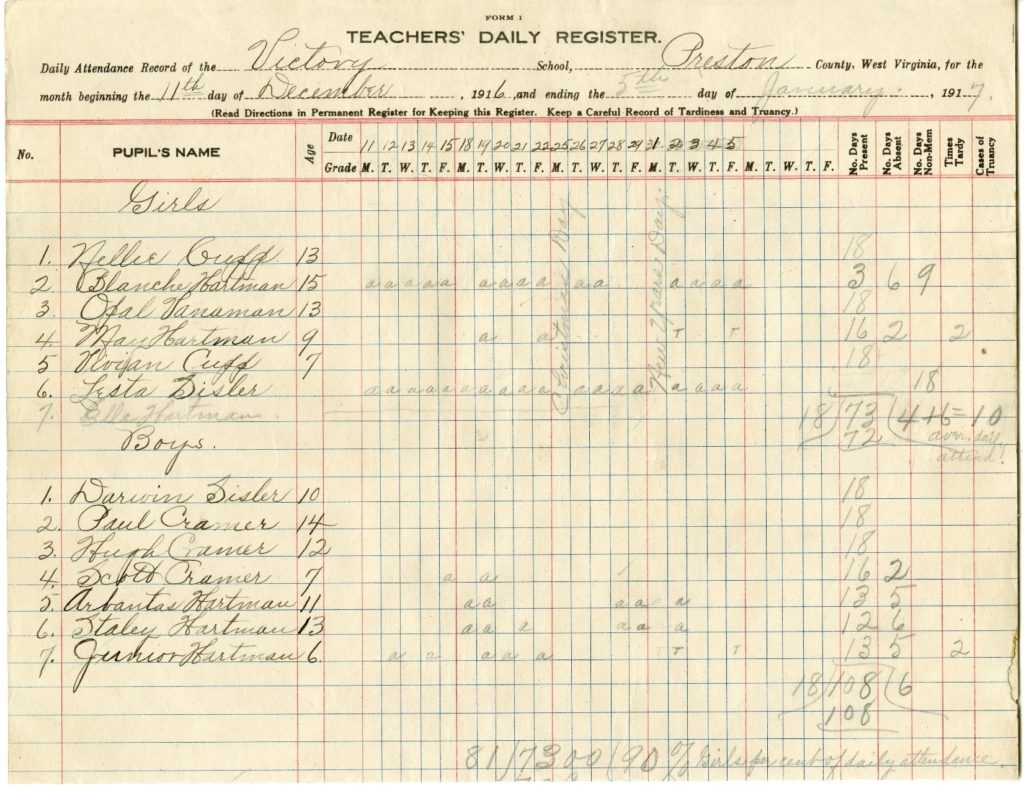 FORM 1
TEACHERS' DAILY REGISTER.
Daily Attendance Record of the Victory School, Preston County, West Virginia, for the
month beginning the 11th day of December, 1916, and ending the 5th day of January, 1917.
(Read Directions in Permanent Register for Keeping this Register. Keep a Careful Record of Tardiness and Truancy.)
No. PUPIL'S NAME Age Date 11 12 13 14 15 18 19 20 21 22 25 26 27 28 29 1 2 3 4 5 No. Days Present No. Days Absent No. Days Non-Mem Times Tardy Cases of Truancy
Grade M. T. W. T. F. M. T. W. T. F. M. T. W. T. F. M. T. W. T. F. M. T. W. T. F.
Christmas Day
New Years Day.
Girls
1. Nellie Cuff 13 18
2. Blanche Hartman 15 a a a a a a a a a a a a a a 3 6 9
3. Opal Vanaman 13 18
4. May Hartman 9 a a T T 16 2 2
5 Vivian Cuff 7 18
6. Lesta Sisler a a a a a a a a a a a a a a a a a a 18
7. Ella Hartman.
18)73(4+6=10
72 aver. daily attend!
Boys.
1. Darwin Sisler 10 18
2. Paul Cramer 14 18
3. Hugh Cramer 12 18
4. Scott Cramer 7 a a 16 2
5. Arbantas Hartman 11 a a a a a 13 5
6. Staley Hartman 13 a a a a a a 12 6
7. Junior Hartman 6. a a a a a T T 13 5 2
18)108(6
108
81)7300(90 % Girls per cent of daily attendance.